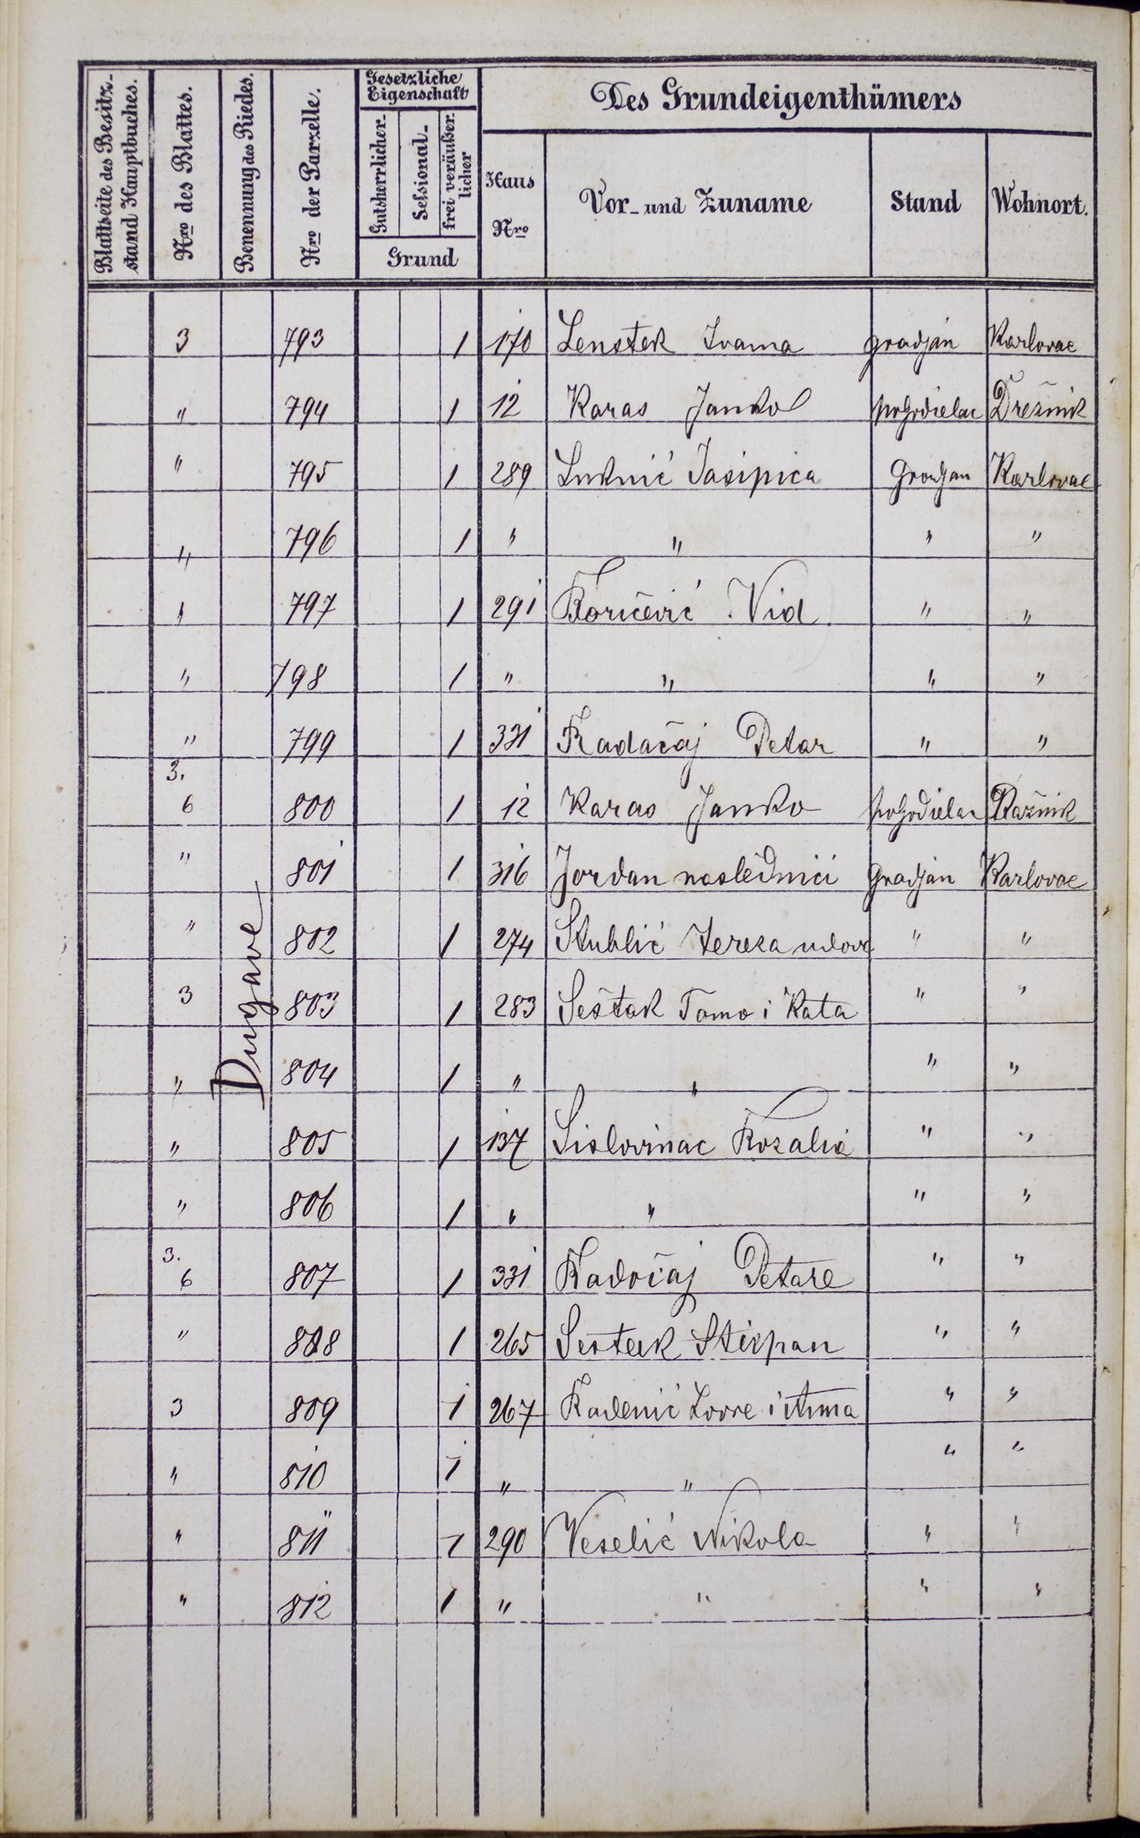 Blattseite des Besitz-stand Hauptbuches.
Nro des Blattes.
Benennung des Riedes.
Nro der Parzelle.
Gesetzliche Eigenschaft
Gutsherrlicher-
Sessional-
frei veräußer-licher
Grund
Des Grundeigenthümers
Haus Nro
Vor- und Zuname
Stand
Wohnort.
Dugave
3 793 1 170 Lenstek Ivana gradjan Karlovac
" 794 1 12 Karas Janko Drežnik
" 795 1 289 Gradjan Karlovac
" 796 1 " " " "
" 797 1 291 Boričević Vid " "
" 798 1 " " " "
" 799 1 331 Radačaj Petar " "
3. 6 800 1 12 Karas Janko
" 801 1 316 Jordan naslednici Gradjan Karlovac
" 802 1 274 Stublić Tereza udova " "
3 803 1 283 Šeštak Tomo i Kata " "
" 804 1 " " " "
" 805 1 137 Sislovinac Rozalia " "
" 806 1 " " " "
3. 6 807 1 331 Radočaj Petare " "
" 808 1 265 Stiepan " "
3 809 1 267 Radenić Lovre i Anna " "
" 810 1 " " " "
" 811 1 290 Veselić Nikola " "
" 812 1 " " " "